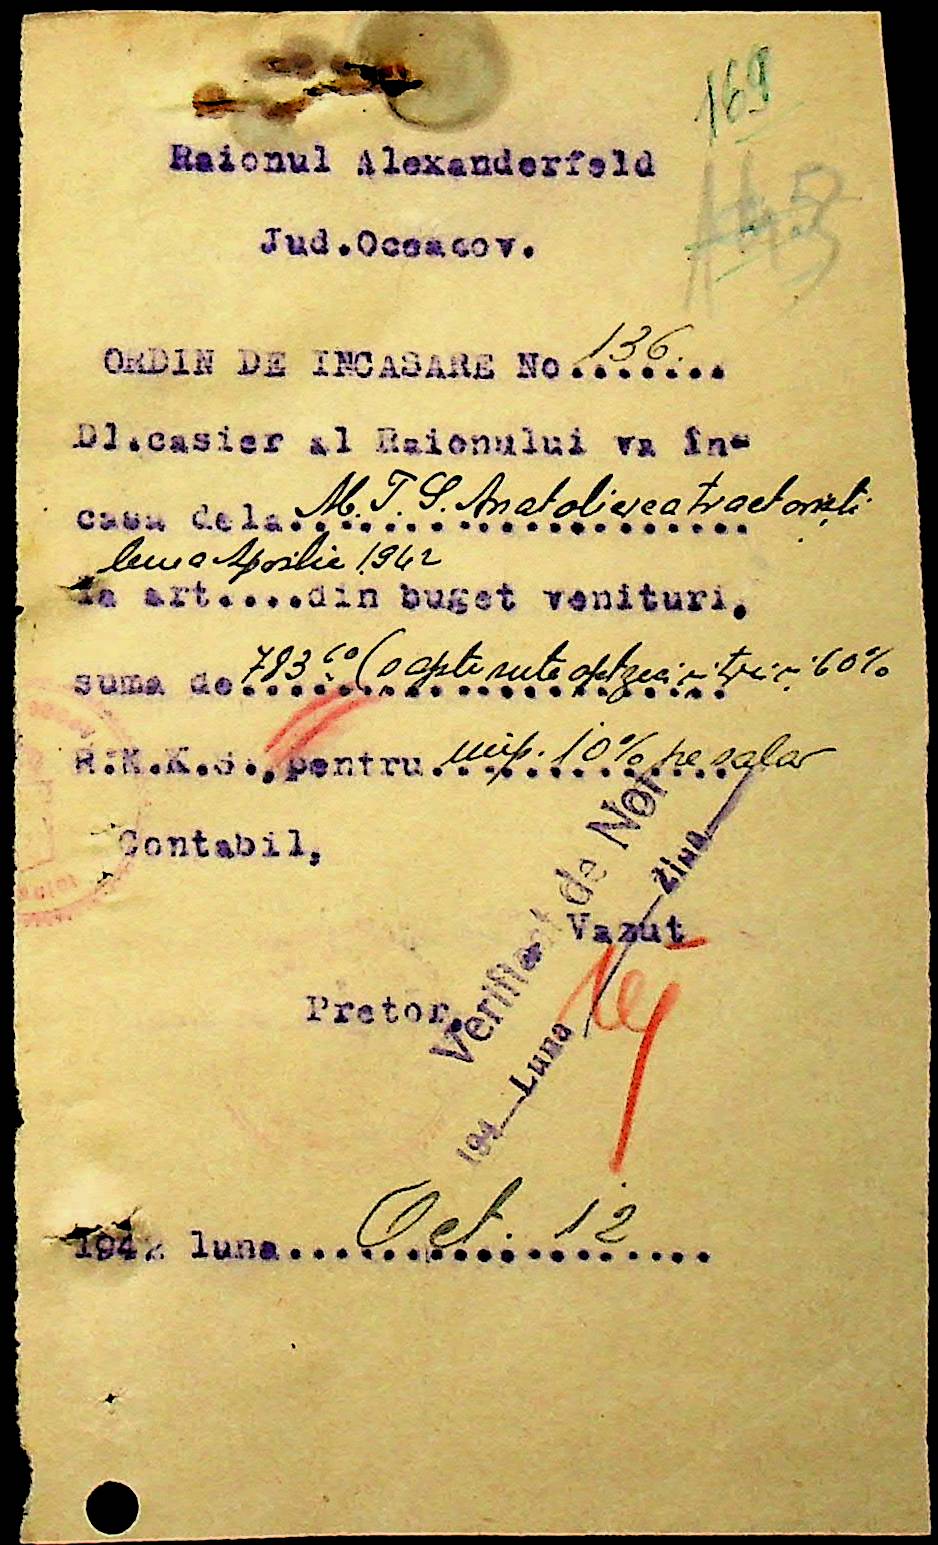 169
Raionul Alexanderfeld
Jud.Oceacov.
ORDIN DE INCASARE No 136.......
Dl.casier al Raionului va în-
casa dela M. T. S. Anatolievca tractoriști
luna Aprilie 1942
la art....din buget venituri,
suma de 783 60 (șapte sute optzeci și trei 60%
R.K.K.S.,pentru imp. 10% pe salar
Contabil,
Verificat de Noi
Vazut
Pretor,
194 Luna Ziua
1942 luna Oct. 12